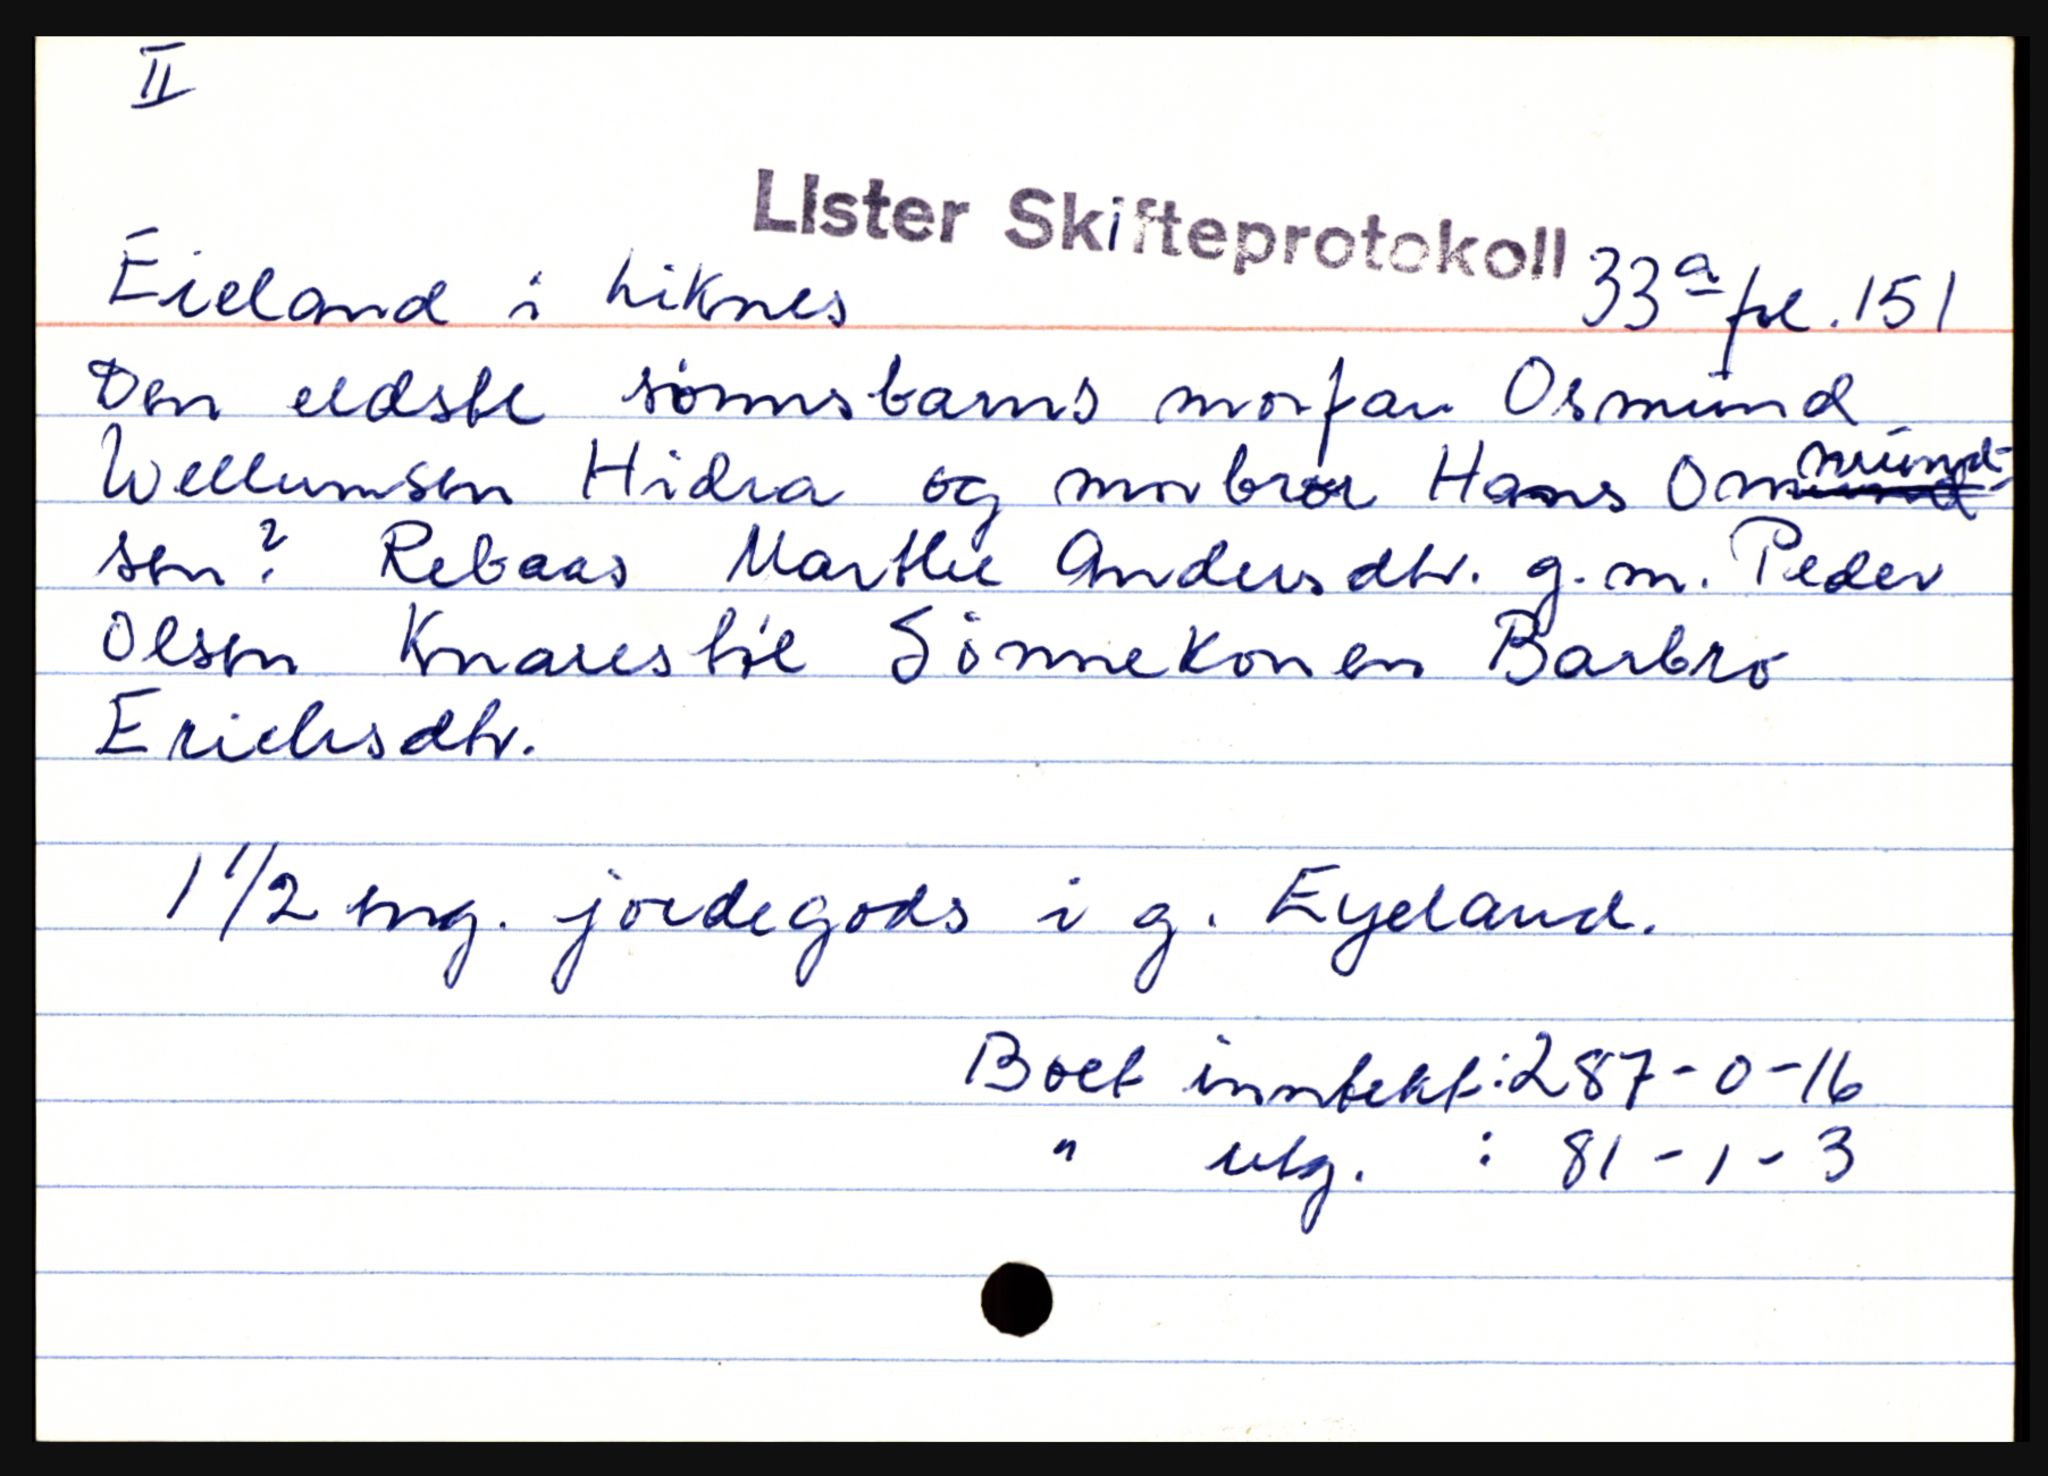 II
LIster Skifteprotokoll
Eieland i Liknes 33a fol. 151
Den eldste sønnsbarns morfar Osmund
Wellumsen Hidra og morbror Hans Ommund-
sen? Rebaas Marthe Andersdtr. g.m. Peder
Olsen Knarestøl Sønnekonen Barbro
Erichsdtr.
1 1/2 eng. jordegods i g. Eyeland.
Boet inntekt: 287-0-16
" utg. : 81-1-3